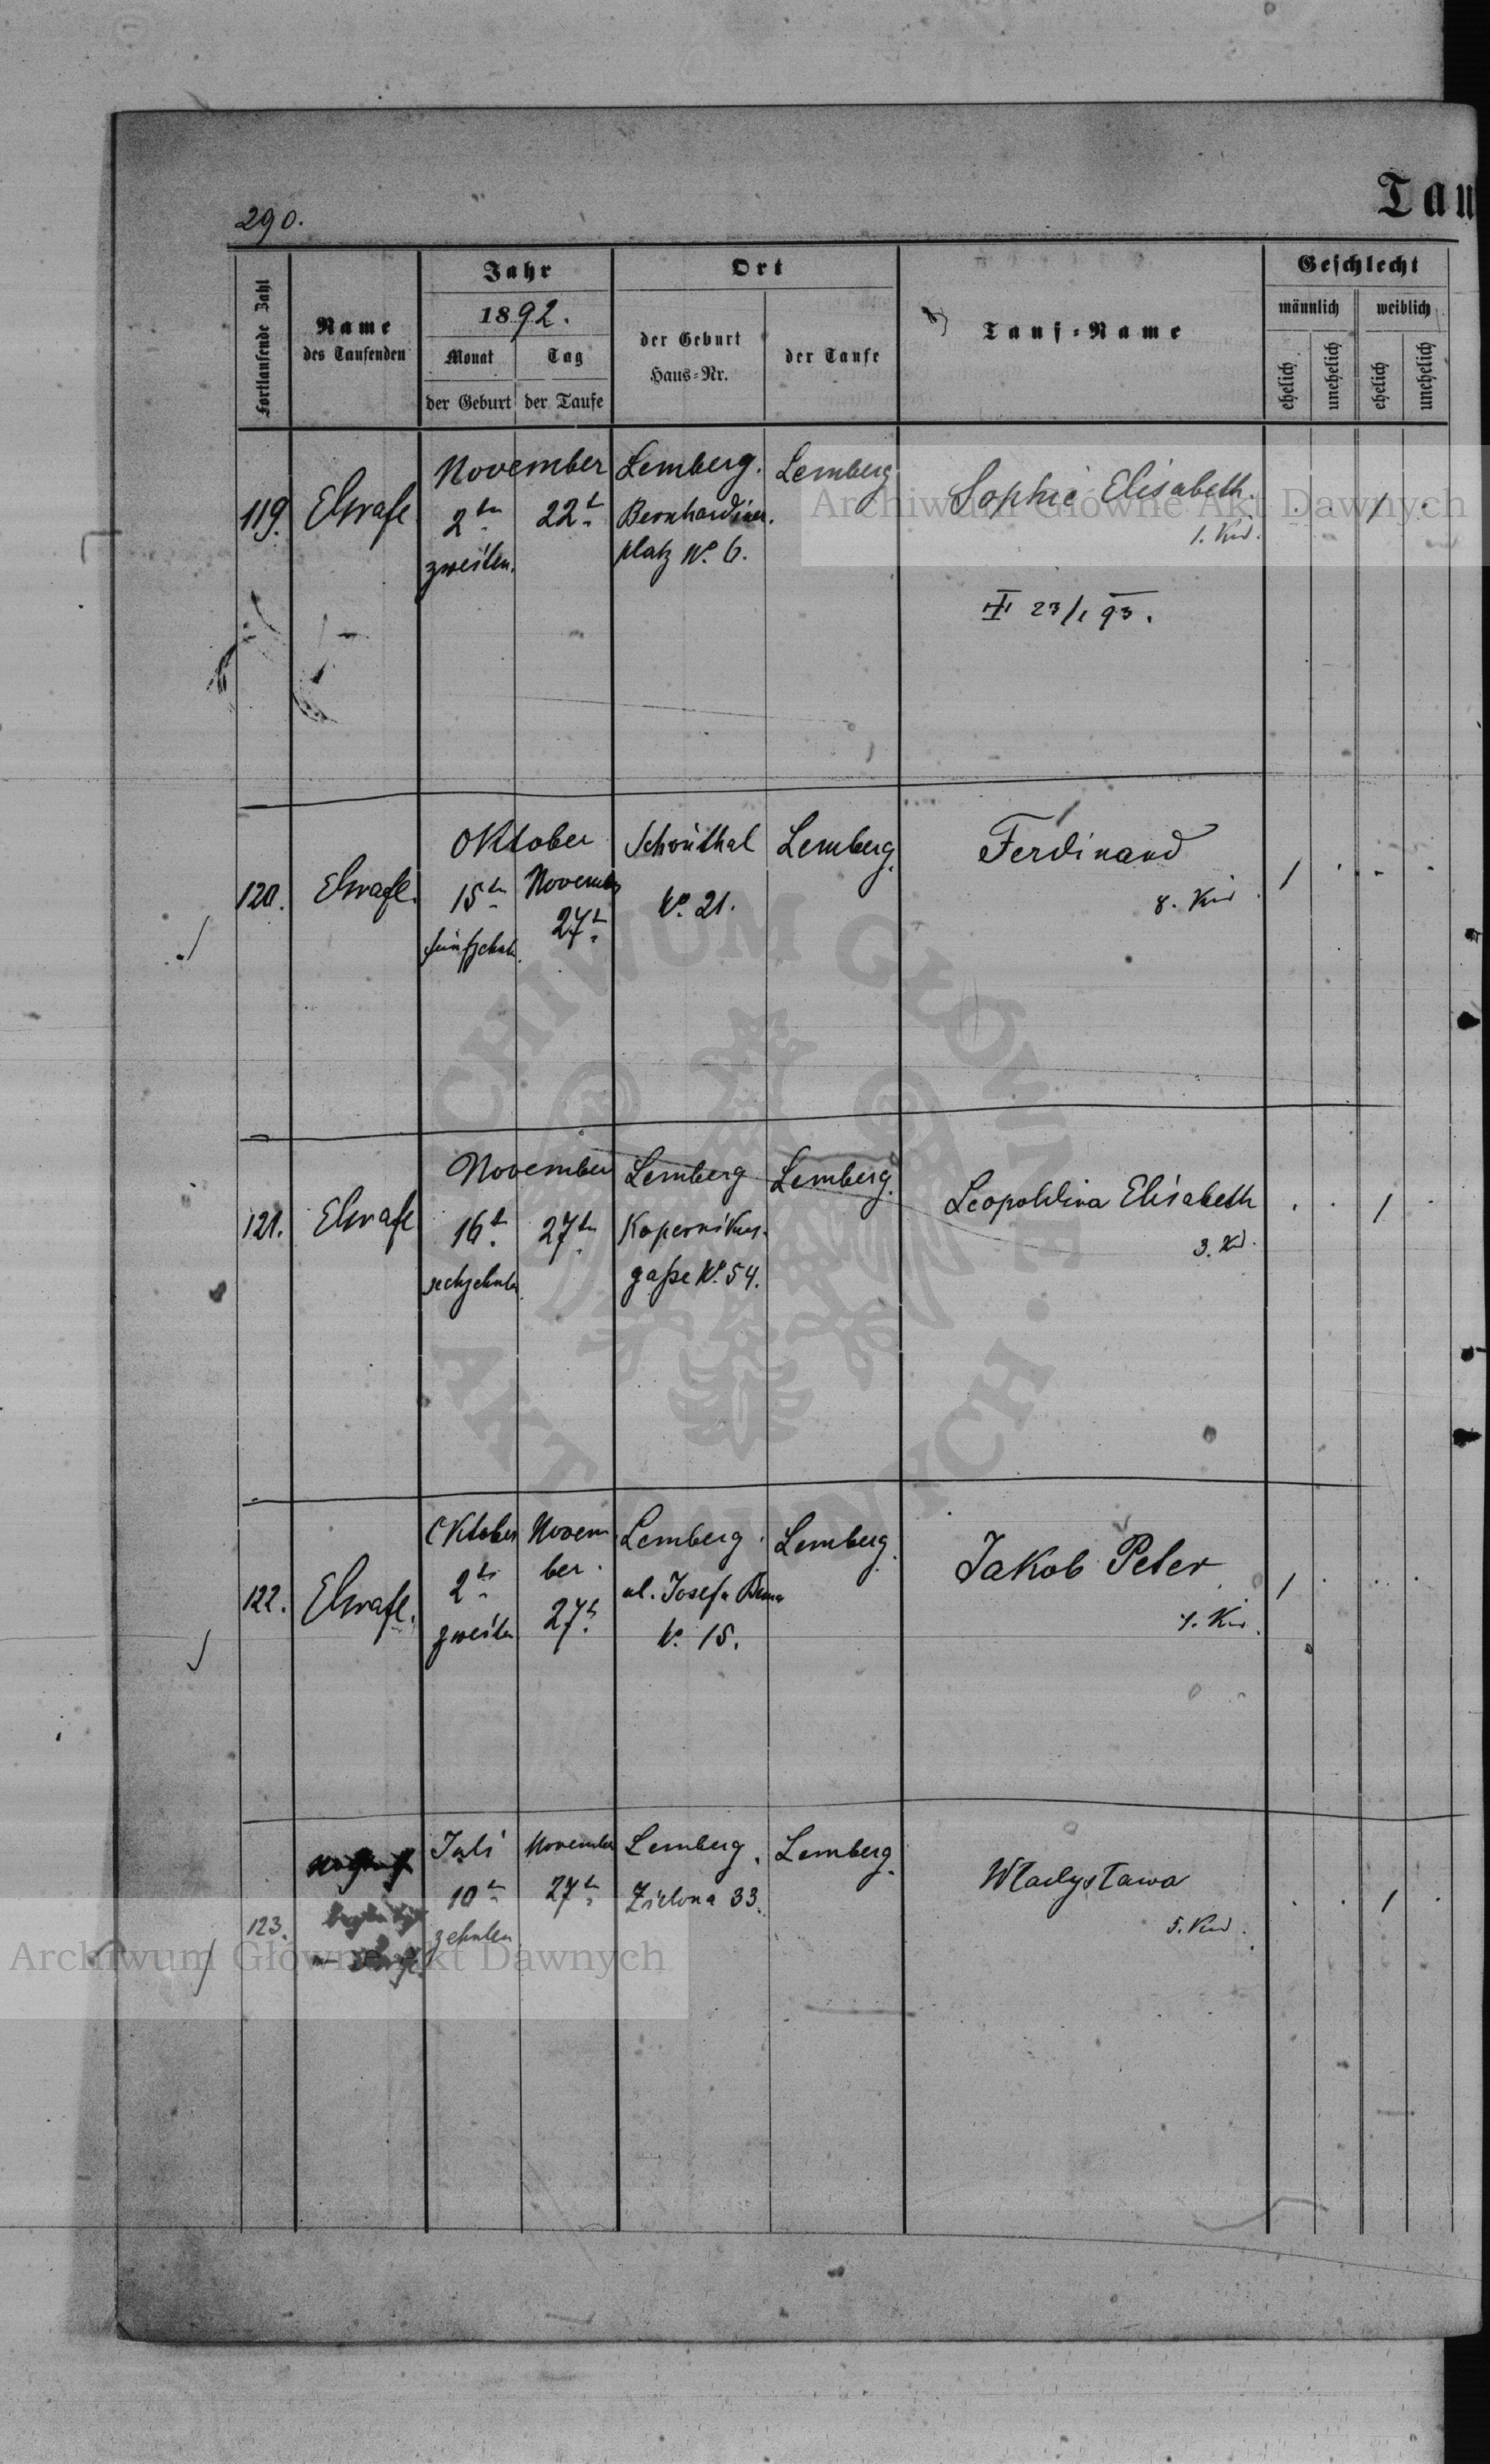 290.
Tau
Fortlaufende Zahl
Name
des Taufenden
Jahr
1892.
Monat
Tag
der Geburt
der Taufe
Ort
der Geburt
Haus-Nr.
der Taufe
Tauf-Name
Geschlecht
männlich
weiblich
ehelich
unehelich
ehelich
unehelich
119.
November
2t
22t
zweiten.
Lemberg.
Bernhardiner.
platz No. 6.
Lemberg
Sophie Elisabeth.
1. Kd.
23/1 93.
1
120.
Oktober
15t
November
27t
Schönthal
No. 21.
Lemberg.
Ferdinand
8. Kd.
1
121.
November
16t
27t
sechzehnten
Lemberg
Kopernikus-
gaße No. 54.
Lemberg.
Leopoldina Elisabeth
3. Kd.
1
122.
Oktober
2t
zweiten
Novem
ber.
27t
Lemberg.
ul. Josefa Bema
No. 15.
Lemberg.
Jakob Peter
Kd.
1
123.
Juli
10t
zehnten
November
27t
Lemberg.
Zielona 33.
Lemberg.
Władysława
5. Kd.
1
Archiwum Główne Akt Dawnych
Archiwum Główne Akt Dawnych
ARCHIWUM GŁÓWNE
AKT DAWNYCH